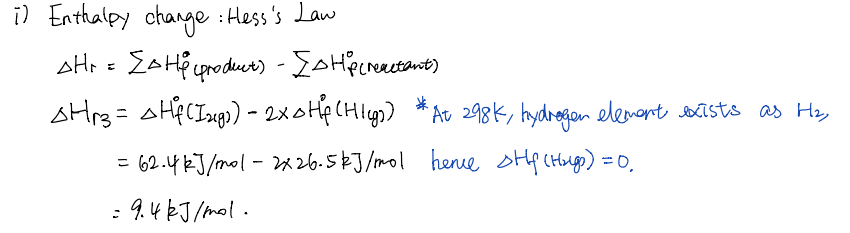 i) Enthalpy change : Hess's Law
ΔHr = ΣΔH°f(product) - ΣΔH°f(reactant)
ΔHr3 = ΔH°f(I2(g)) - 2×ΔH°f(HI(g)) * At 298K, hydrogen element exists as H2,
= 62.4 kJ/mol - 2×26.5 kJ/mol hence ΔHf(H2(g)) = 0.
= 9.4 kJ/mol.